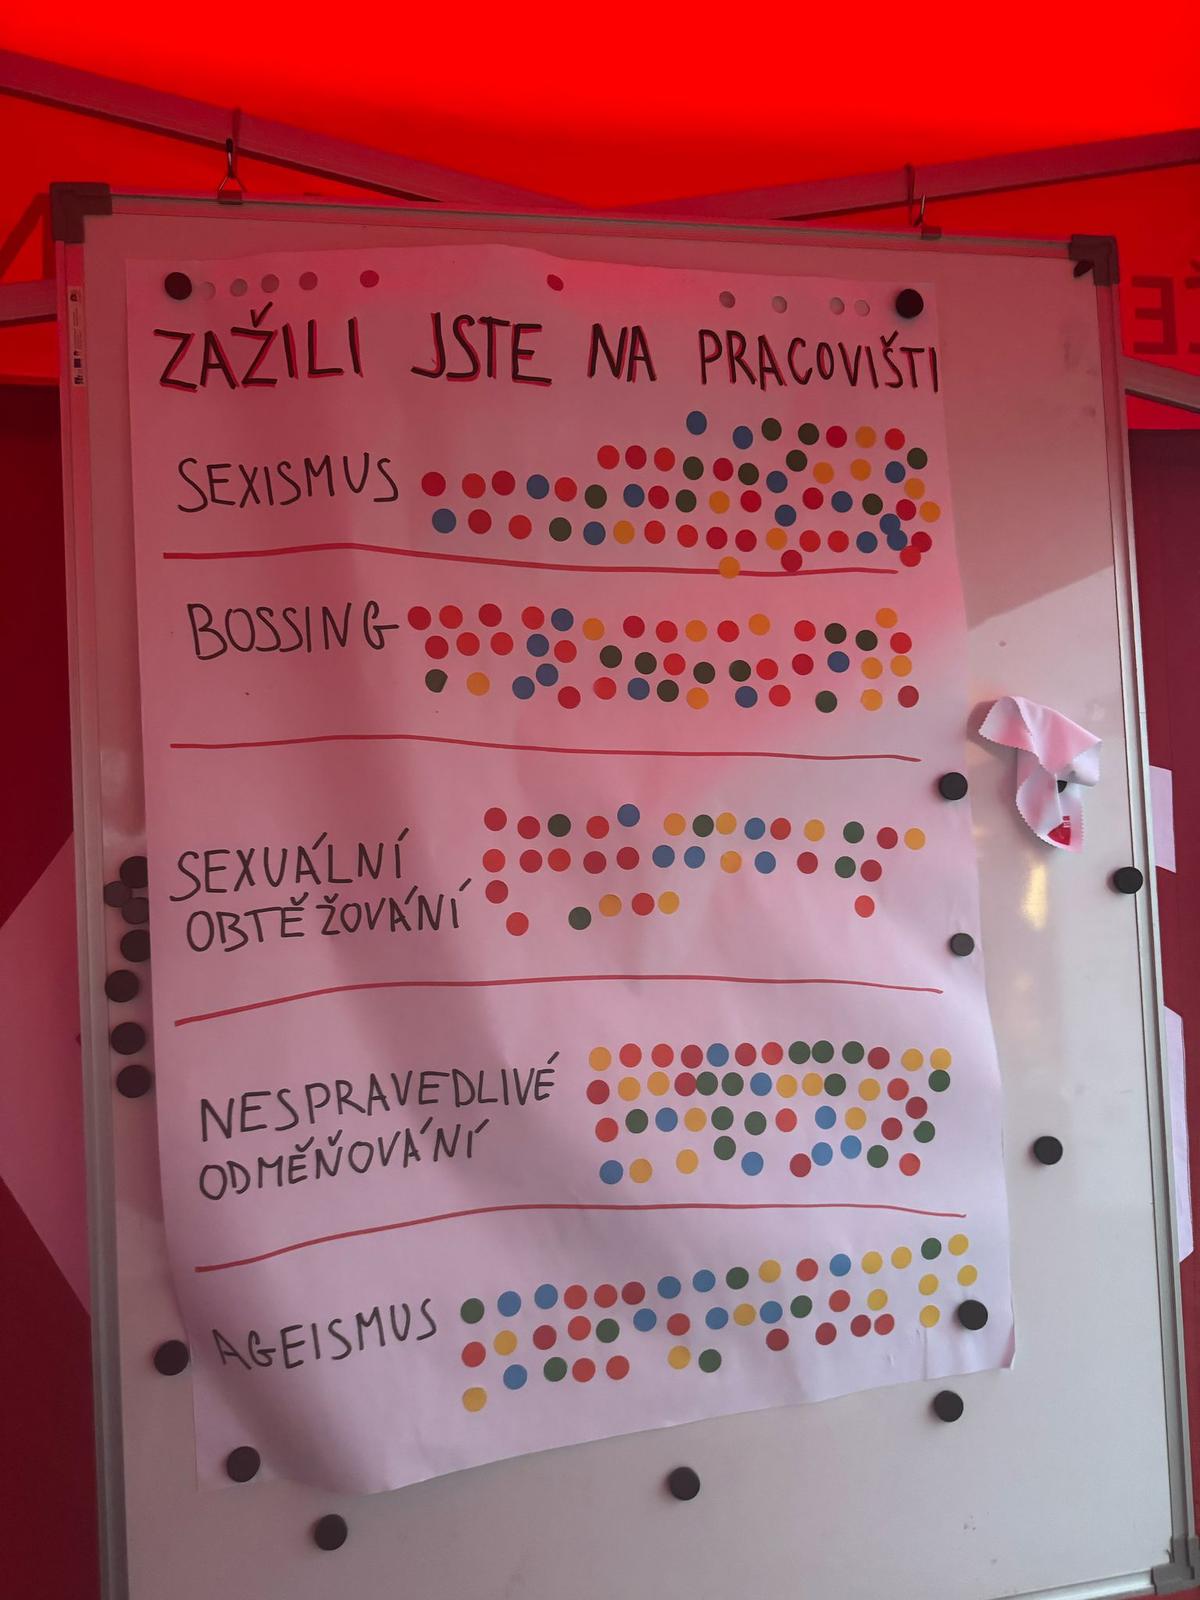 ZAŽILI JSTE NA PRACOVIŠTI
SEXISMUS
BOSSING
SEXUÁLNÍ
OBTĚŽOVÁNÍ
NESPRAVEDLIVÉ
ODMĚŇOVÁNÍ
AGEISMUS